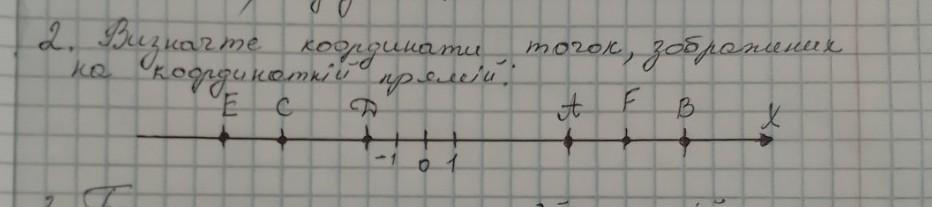 2. Визначте координати точок, зображених
на координатній прямій:
E C D A F B X
-1 0 1